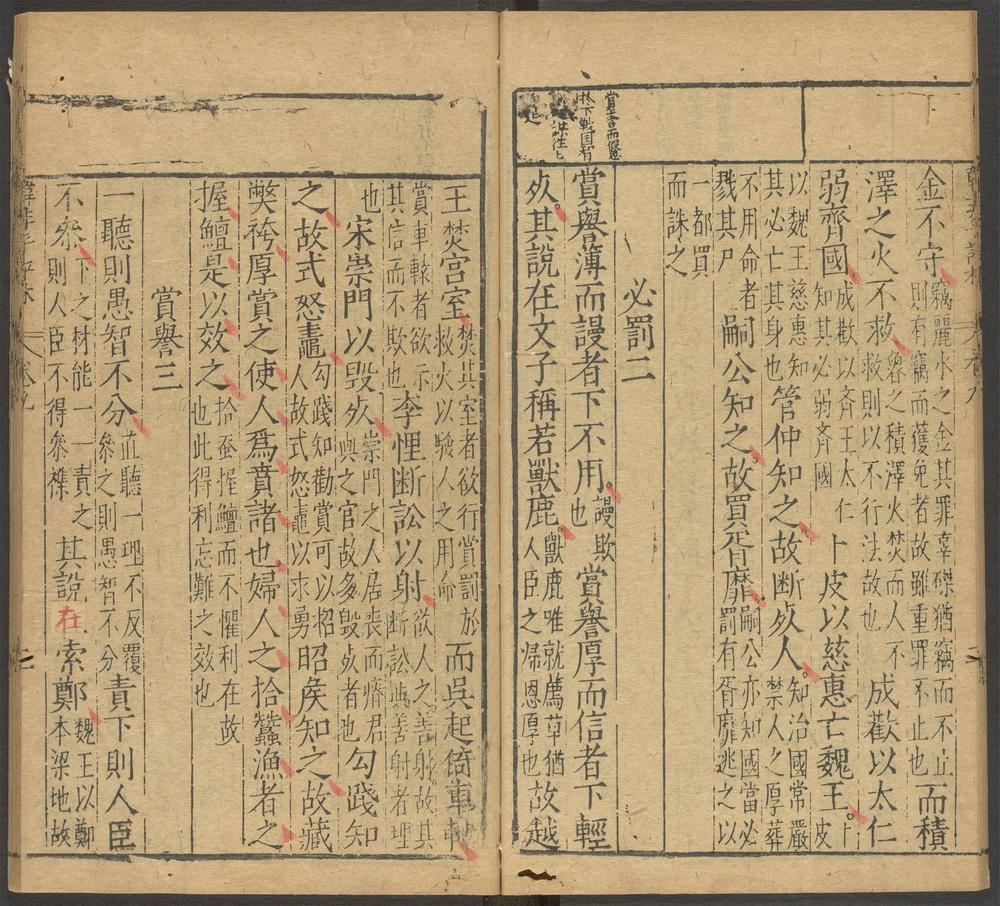 金不守竊麗水之金其罪辜磔猶竊而不止則有竊而獲免者故雖重罪不止也而積
澤之火不救魯之積澤火焚而人不救救則以不行法故也成歡以太仁
弱齊國成歡以齊王太仁知其必弱齊國卜皮以慈惠亡魏王卜皮
以魏王慈惠知其必亡其身也管仲知之故断死人知治國常嚴禁人之厚葬
不用命者戮其尸嗣公知之故買胥靡嗣公亦知國當必罰有胥靡逃之以
一都買而誅之
必罰二
賞譽薄而謾者下不用謾欺也賞譽厚而信者下輕
死其說在文子稱若獸鹿獸鹿唯就薦草猶人臣之歸恩厚也故越
王焚宮室焚其室者欲行賞罰於救火以驗人之用命而吳起倚車轅
賞車轅者欲示其信而不欺也李悝断訟以射欲人之善射故其断訟與善射者理
也宋崇門以毀死崇門之人居喪而瘠君與之官故多毀死者也勾踐知
之故式怒䵷勾踐知勸賞可以招人故式怒䵷以求勇昭矦知之故藏
獘袴厚賞之使人爲賁諸也婦人之拾蠶漁者之
握鱣是以效之拾蚕握鱣而不懼利在故也此得利忘難之效也
賞譽三
一聽則愚智不分直聽一理不反覆參之則愚智不分責下則人臣
不叅下之材能一一責之則人臣不得叅襍其說在索鄭魏王以鄭本梁地故